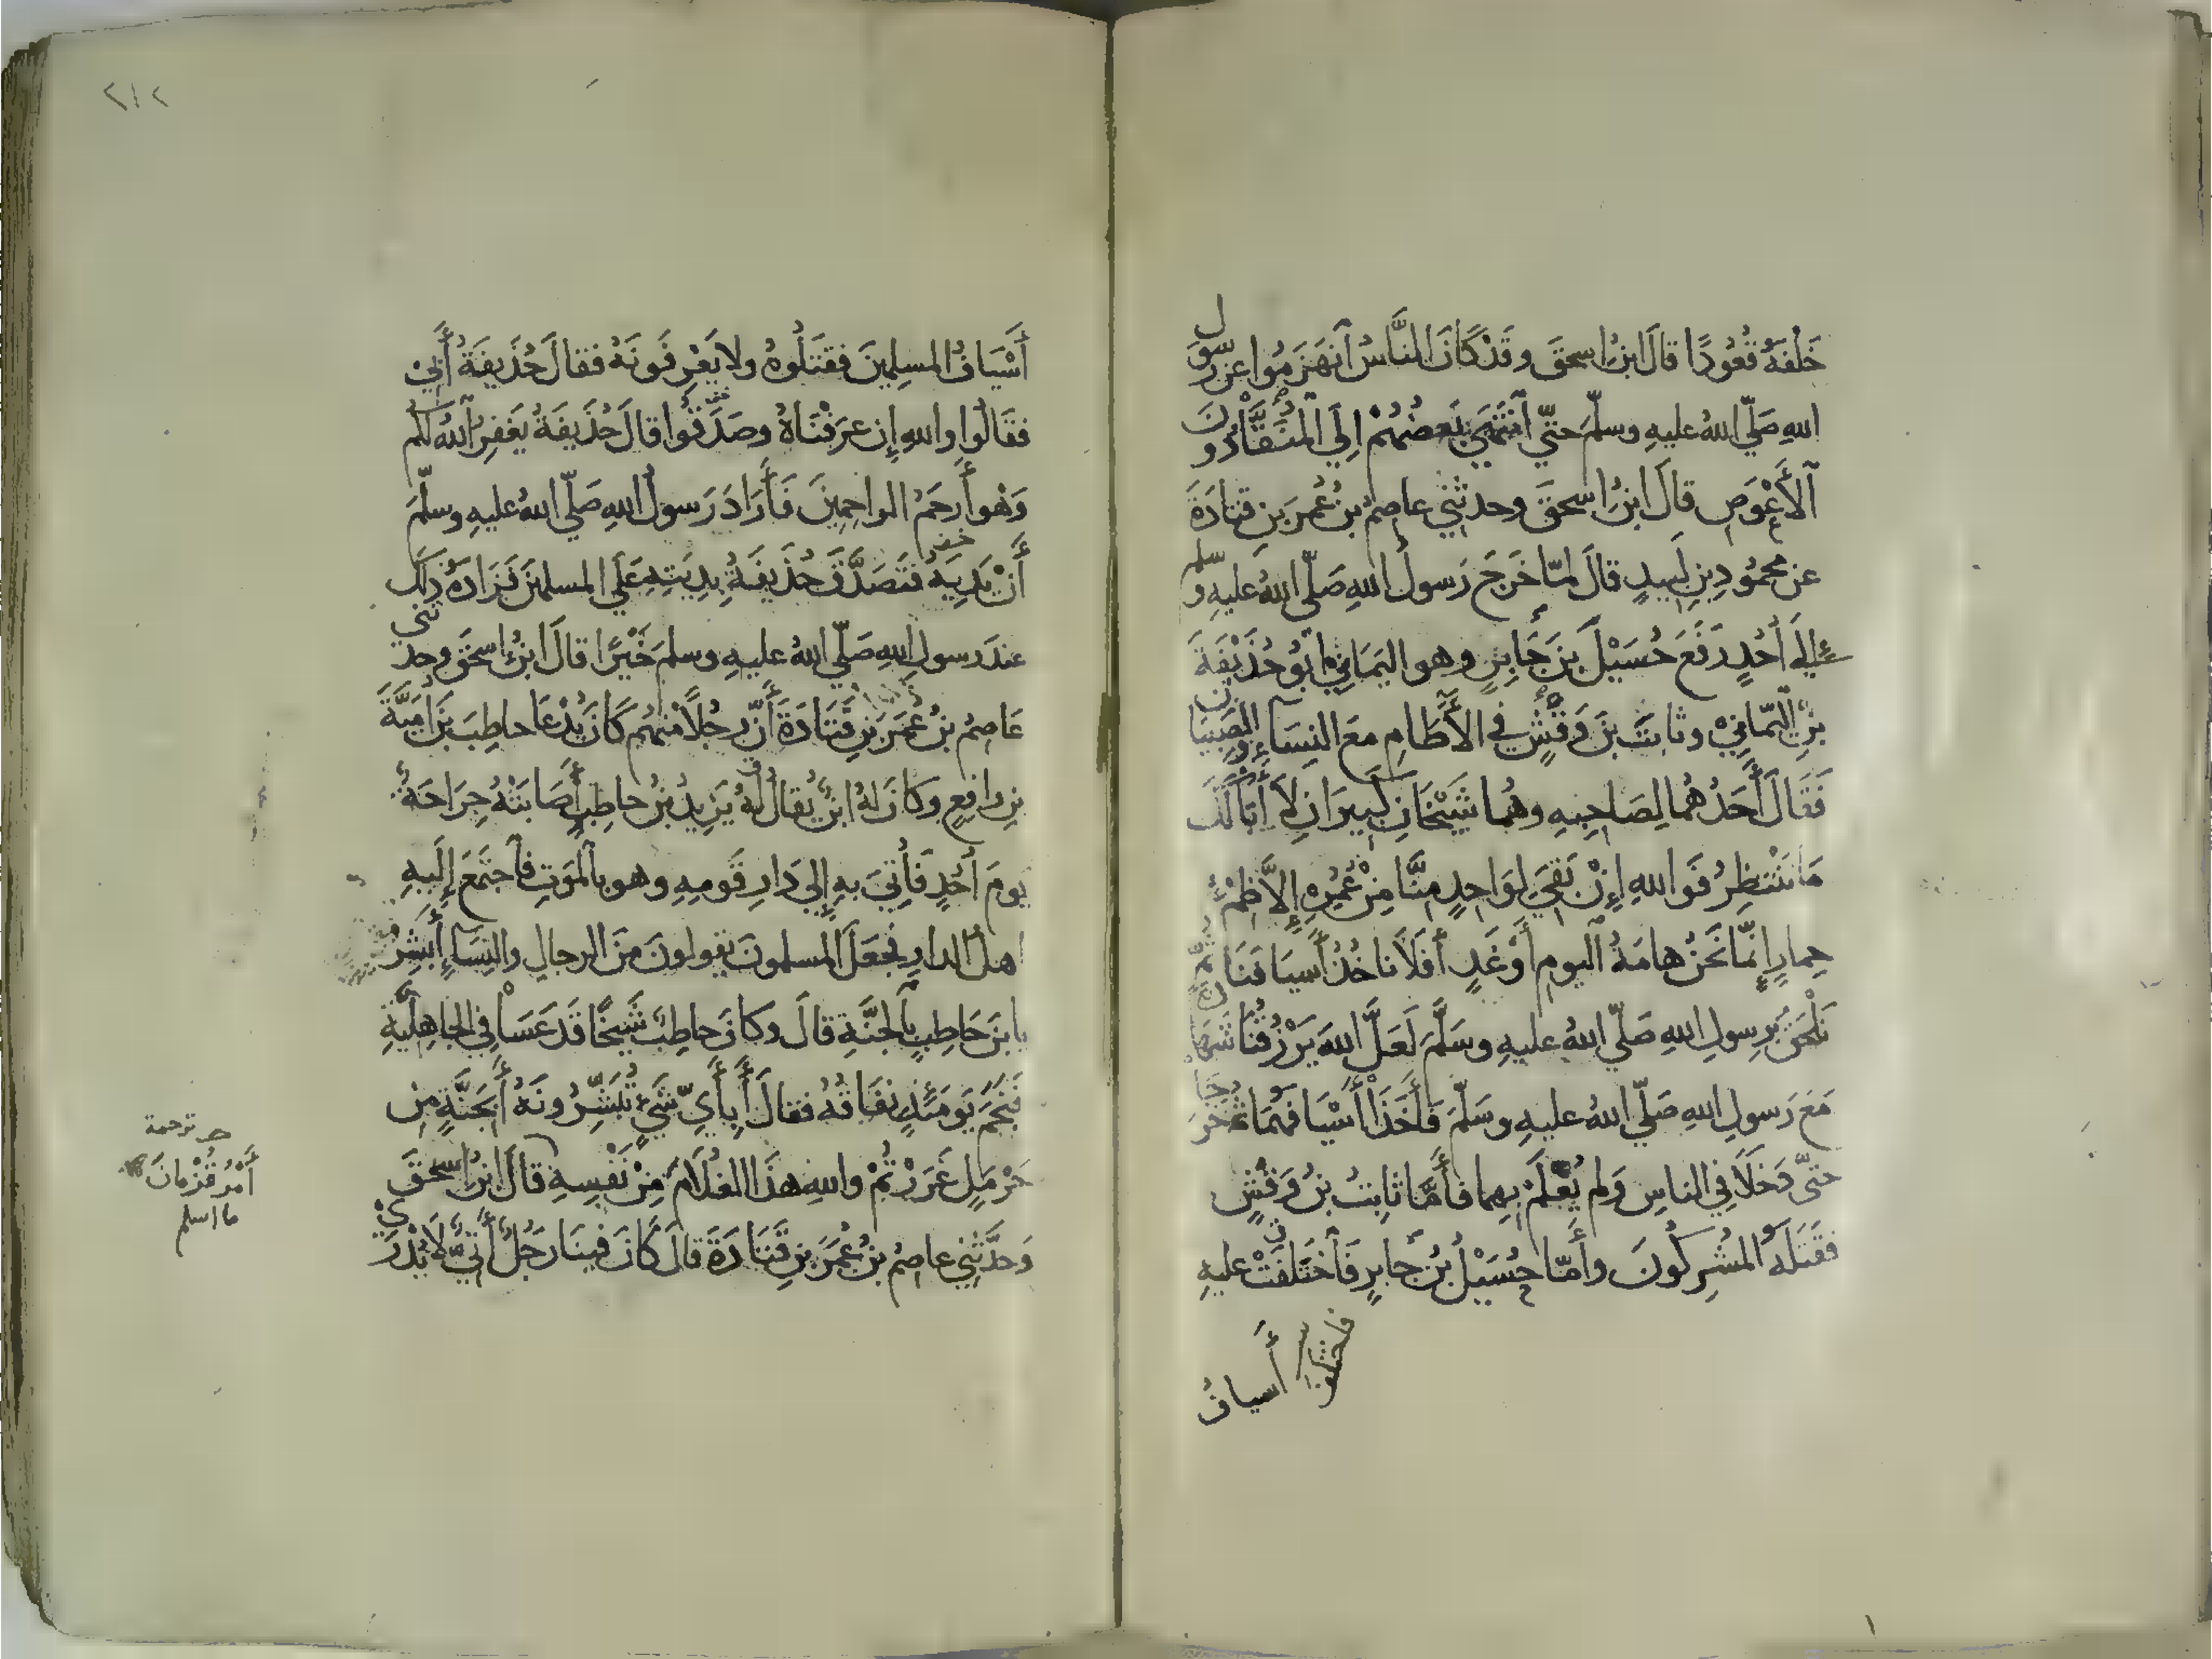 خَلْفَهُ قُعُودًا قالَ ابنُ اسحقَ وقَدْ كَانَ النَّاسُ ٱنهَزَمُوا عن رسول
اللهِ صَلّي اللهُ عليهِ وسلّمَ حتّي ٱنتَهَي بَعضُهُمْ اِلَي المُنَقَّا دُونَ
ٱلأَعْوَصِ قالَ ابنُ اسحقَ وحدثني عاصمُ بنُ عُمرَ بنِ قتادَةَ
عن محمودِ بنِ لَبيدٍ قالَ لمّا خَرَجَ رَسولُ اللهِ صَلّي اللهُ عليهِ وسلم
اِلَي أُحُدٍ رَفَعَ حُسَيْلُ بنُ جَابِرٍ وهو اليَمَانِي أَبُو حُذَيْفَةَ
بنِ اليَمَانِيْ وثابتُ بنُ وَقْشٍ في الأَطَامِ مَعَ النِسَآءِ والصِبيَانِ
فَقَالَ أَحَدُهُما لِصَاحِبِهِ وهُما شَيْخَانِ كَبيرَانِ لاَ أَبَا لَكَ
مَا نَنْتَظِرُ فَوَاللهِ إِنْ بَقِيَ لِوَاحِدٍ مِنَّا مِنْ عُمُرِهِ إِلاَّ ظِمْءُ
حِمارٍ إِنَّمَا نَحْنُ هامَةُ ٱليومِ أَوْ غَدٍ أَفَلاَ ناخُذُ أَسيَافَنَا ثُمَّ
نَلْحَقُ بِرَسولِ اللهِ صَلّي اللهُ عليهِ وسَلَّمَ لَعَلَّ اللهَ يَرْزُقُنَا شَهَادة
مَعَ رَسولِ اللهِ صَلّي اللهُ عليهِ وسَلّمَ فَأَخَذَا أَسْيَافَهُمَا ثُمَّ خَرَجَا
حتّي دَخَلَا في الناسِ وَلم يُعْلَمْ بِهِما فأَمَّا ثابتُ بنُ وَقْشٍ
فقَتَلَهُ المُشرِكُونَ وأَمّا حُسَيْلُ بنُ جَابرٍ فَٱختَلَفَتْ عليهِ
فاختلفوا
أَسيافُ
٢١٢
أَسْيَافُ المسلِمينَ فقَتَلُوهُ ولا يَعْرِفُونَهُ فقالَ حُذَيفَةُ أَبِيْ
فقَالُوا واللهِ إِن عرَفْنَاهُ وصَدَقُوا قالَ حُذَيفَةُ يَغفِرُ ٱللهُ لكم
وَهْوَ أَرحَمُ الراحِمِينَ فَأَرَادَ رَسولُ اللهِ صَلّي اللهُ عليهِ وسلّمَ
أَنْ يَدِيَهُ فتَصَدَّقَ حُذَيفَةُ بِدِيَتِهِ عَلَي المسلمينَ فَزَادَهُ ذلِكَ
عندَ رسولِ اللهِ صَلّي اللهُ عليهِ وسلمَ خَيْرًا قالَ ابنُ اسحقَ وحدثني
عَاصِمُ بنُ عُمَرَ بنِ قَتَادَةَ أَنَّ رجُلًا مِنهُم كَانَ يُدْعَا حاطِبَ بنَ أُمَيَّةَ
بنِ رافِعٍ وكَانَ لهُ ابنٌ يُقالُ لهُ يَزِيدُ بنُ حاطِبٍ أَصَابَتْهُ جِرَاحَةٌ
يومَ أُحُدٍ فَأُتِيَ بهِ إِلي دَارِ قَومِهِ وهو بالمَوتِ فَٱجتَمَعَ إِلَيهِ
اهلُ الدارِ فجَعَلَ المسلمونَ يقولونَ مِنَ الرجالِ والنِسَآءِ أَبشِرْ
يا بنَ حَاطِبٍ بِٱلجَنَّةِ قالَ وكَانَ حاطِبٌ شَيخًا قَدْ عَسَا في الجاهِليَّةِ
فَنَجَمَ يَومَئِذٍ نِفَاقُهُ فقالَ أَبِأَيِّ شَيءٍ تُبَشِّرُونَهُ أَبِجَنَّةٍ مِنْ
حَرْمَلٍ غَرَرْتُمْ واللهِ هذَا الغُلَامَ مِنْ نَفْسِهِ قالَ ابنُ اسحقَ
وَحدَّثَنِي عاصِمُ بنُ عُمَرَ بنِ قَتَادَةَ قالَ كَانَ فينَا رَجُلٌ أَتِيٌّ لَا يُدْرَي
ترجمة
أَمْرُ قُزْمانَ
ما اسلم